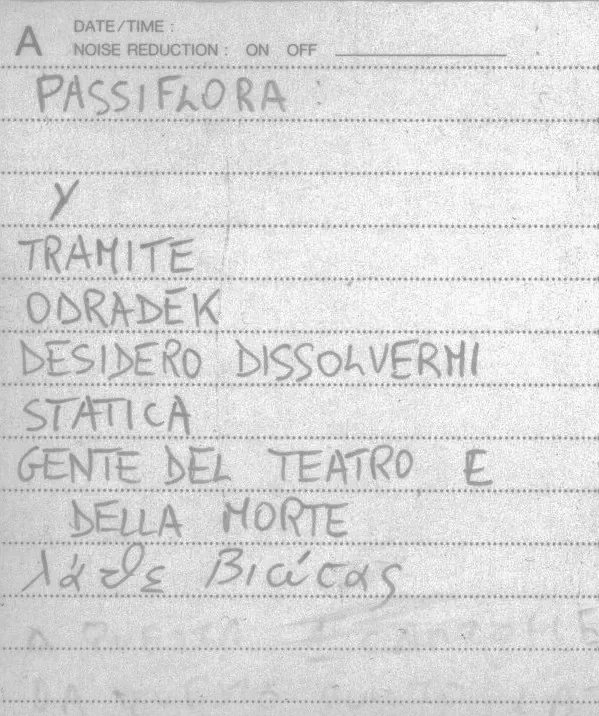 A DATE/TIME :
NOISE REDUCTION : ON OFF
PASSIFLORA :
Y
TRAMITE
ODRADEK
DESIDERO DISSOLVERMI
STATICA
GENTE DEL TEATRO E
DELLA MORTE
λάθε βιώσας